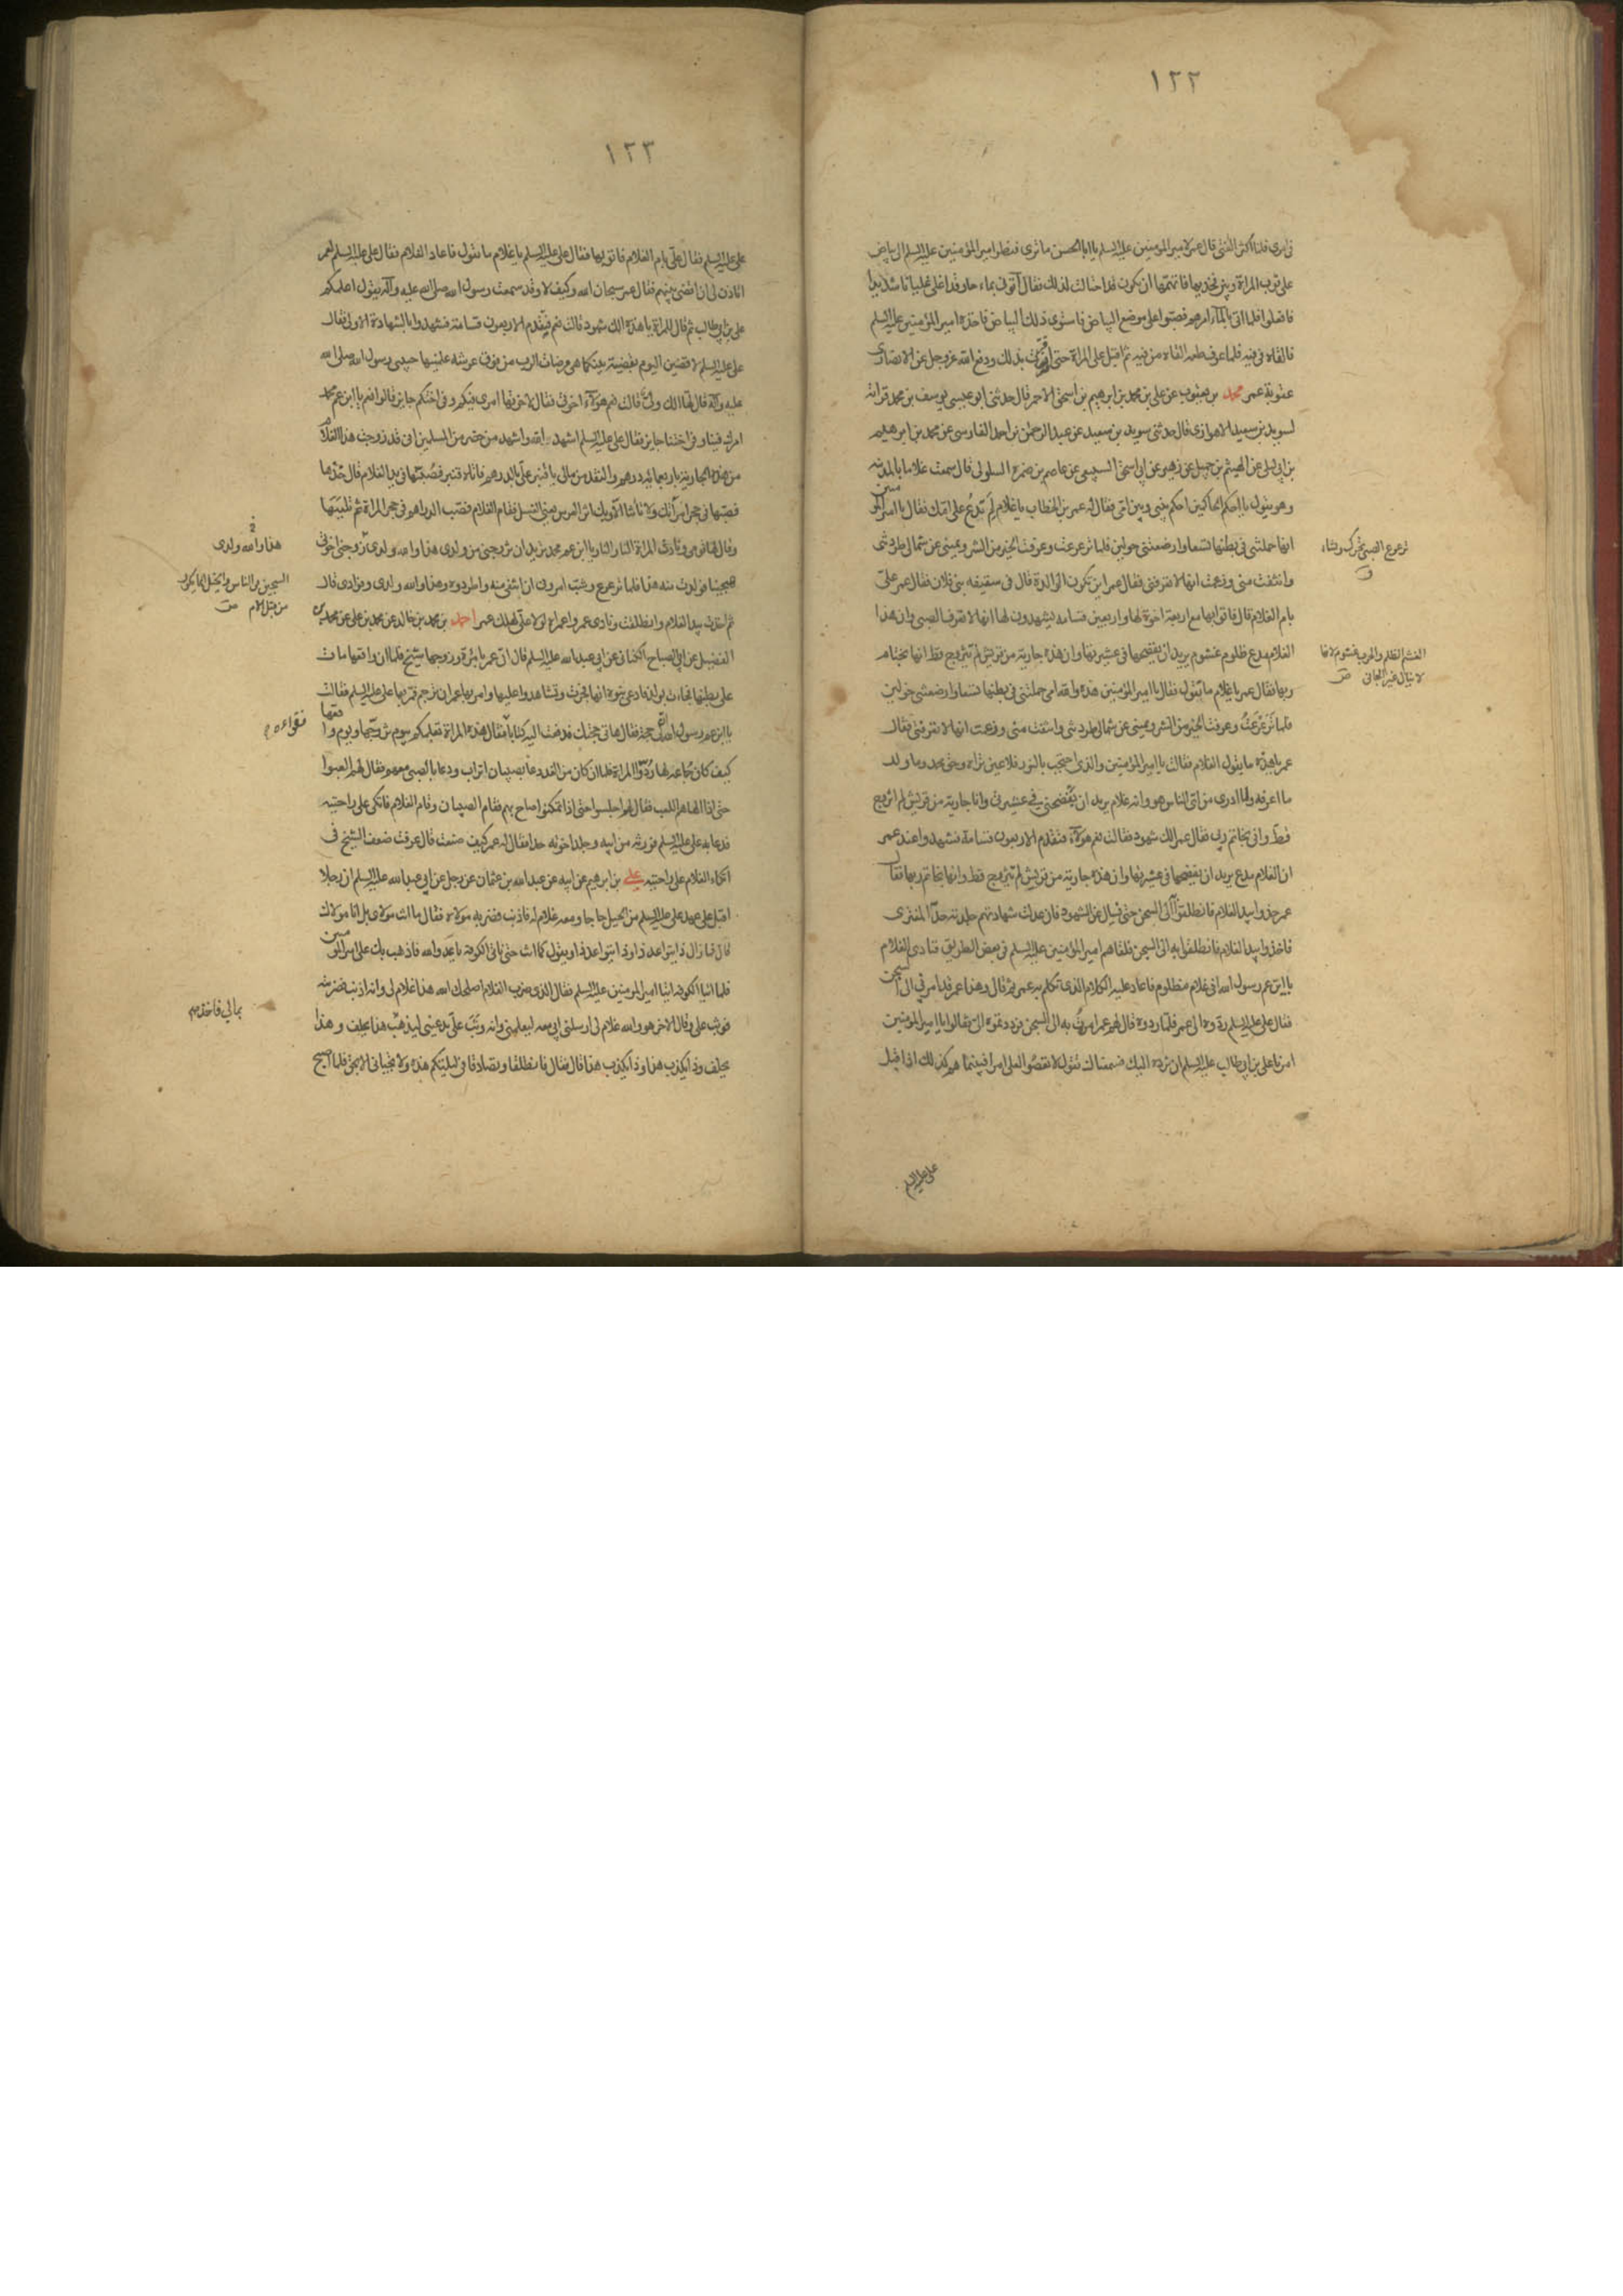 ١٢٢
في امرى فلما اكثر الفتى قال عمر لامير المؤمنين عليه السلم يا ابا الحسن ما ترى فنظر امير المؤمنين عليه السلم الى بياض
على ثوب المراة وبين فخذيها فاتهمها ان تكون قد احتالت لذلك فقال آتونى بماء حار قد اغلى غليانا شديدا
ففعلوا فلما اتى بالماء امرهم فصبوا على موضع البياض فاشتوى ذلك البياض فاخذه امير المؤمنين عليه السلم
فالقاه فى فيه فلما عرف طعمه القاه من فيه ثم اقبل على المراة حتى اقرت بذلك ودفع الله عز وجل عن الانصارى
عقوبة عمر محمد بن يعقوب عن على بن محمد بن ابرهيم بن اسحق الاحمر قال حدثنى ابو عيسى يوسف بن محمد قرابة
لسويد بن سعيد الاهوازى قال حدثنى سويد بن سعيد عن عبد الرحمن بن احمد الفارسى عن محمد بن ابرهيم
بن ابى ليلى عن الهيثم بن جميل عن زهير عن ابى اسحق السبيعى عن عاصم بن ضمرة السلولى قال سمعت غلاما بالمدينة
وهو يقول يا احكم الحاكمين احكم بينى وبين امى فقال له عمر بن الخطاب يا غلام لم تدعو على امك فقال يا امير المؤمنين
انها حملتنى فى بطنها تسعا وارضعتنى حولين فلما ترعرعت وعرفت الخير من الشر ويمينى عن شمالى طردتنى
وانتفت منى وزعمت انها لا تعرفنى فقال عمر اين تكون الوالدة قال فى سقيفه بنى فلان فقال عمر على
بام الغلام قال فاتوا بها مع اربعة اخوة لها واربعين قسامه يشهدون لها انها لا تعرف الصبى وان هذا
الغلام مدع ظلوم غشوم يريد ان يفضحها فى عشيرتها وان هذه جارية من قريش لم تتزوج قط انها بخاتم
ربها فقال عمر يا غلام ما تقول فقال يا امير المؤمنين هذه والله امى حملتنى فى بطنها تسعا وارضعتنى حولين
فلما ترعرعت وعرفت الخير من الشر ويمينى عن شمالى طردتنى وانتفت منى وزعمت انها لا تعرفنى فقال
عمر يا هذه ما يقول الغلام فقالت يا امير المؤمنين والذى احتجب بالنور فلا عين تراه وحق محمد وما ولد
ما اعرفه ولا ادرى من اى الناس هو وانه غلام يريد ان يفضحنى فى عشيرتى وانا جارية من قريش لم اتزوج
قط وانى بخاتم ربى فقال عمر الك شهود فقالت نعم هؤلاء فتقدم الاربعون قسامة فشهدوا عند عمر
ان الغلام مدع يريد ان يفضحها فى عشيرتها وان هذه جارية من قريش لم تتزوج قط وانها بخاتم ربها فقال
عمر خذوا بيد الغلام فانطلقوا الى السجن حتى نسال عن الشهود فان عدلت شهادتهم جلدته حد المفترى
فاخذوا بيد الغلام فانطلقوا به الى السجن فلقاهم امير المؤمنين عليه السلم فى بعض الطريق فنادى الغلام
يا ابن عم رسول الله انى غلام مظلوم فاعاد عليه الكلام الذى تكلم به عمر ثم قال وهذا عمر قد امر فى الى السجن
فقال على عليه السلم ردوه الى عمر فلما ردوه قال لهم عمر امرت به الى السجن فرددتموه الى فقالوا يا امير المؤمنين
امرنا على بن ابى طالب عليه السلم ان نرده اليك فسمعناك تقول لا تعصوا لعلى امرا فبينما هم كذلك اذا اقبل
على عليه السلم
ترعرع الصبى تحرك ونشاء
ق
الغشم الظلم والحرب غشوم لانها
لا تنال غير الجانى ص
١٢٣
على عليه السلم فقال على بام الغلام فاتوا بها فقال على عليه السلم يا غلام ما تقول فاعاد الغلام فقال على عليه السلم لعمر
اتاذن لى ان اقضى بينهم فقال عمر سبحان الله وكيف لا وقد سمعت رسول الله صلى الله عليه وآله يقول اعلمكم
على بن ابى طالب ثم قال للمراة يا هذه الك شهود قالت نعم فتقدم الاربعون قسامة فشهدوا بالشهادة الاولى فقال
على عليه السلم لاقضين اليوم بقضية بينكما هى مرضات الرب من فوق عرشه علمنيها حبيبى رسول الله صلى الله
عليه وآله ثم قال لها الك ولى قالت نعم هؤلاء اخوتى فقال لاخوتها امرى فيكم وفى اختكم جايز قالوا نعم يا ابن عم محمد
امرك فينا وفى اختنا جايز فقال على عليه السلم اشهد الله واشهد من حضر من المسلمين انى قد زوجت هذا الغلام
من هذه الجارية باربعمائة درهم والنقد من مالى يا قنبر على بالدراهم فاتاه قنبر فصبها فى يد الغلام قال خذها
فصبها فى حجر امراتك ولا تاتنا الا وبك اثر العرس يعنى الغسل فقام الغلام فصب الدراهم فى حجر المراة ثم تلببها
وقال لها قومى فنادت المراة النار النار يا ابن عم محمد تريد ان تزوجنى من ولدى هذا والله ولدى زوجنى اخوتى
هجينا فولدت منه هذا فلما ترعرع وشب امرونى ان انتفى منه واطرده وهذا والله ولدى وفؤادى قال
ثم اخذت بيد الغلام وانطلقت ونادى عمر واعمراه لولا على لهلك عمر احمد بن محمد بن خالد عن محمد بن على عن محمد بن
الفضيل عن ابى الصباح الكنانى عن ابى عبد الله عليه السلم قال اتى عمر بامراة وزوجها شيخ فلما ان واقعها مات
على بطنها فجاءت بولد فادعى بنوه انها فجرت وتشاهدوا عليها وامر بها عمر ان ترجم فمر بها على عليه السلم فقالت
يا ابن عم رسول الله ان لى حجة فقال هاتى حجتك فدفعت اليه كتابا فقراه فقال هذه المراة تعلمكم بيوم تزوجها ويوم واقعها
كيف كان جماعه لها ردوا المراة فلما ان كان من الغد دعا بصبيان اتراب ودعا بالصبى معهم فقال لهم العبوا
حتى اذا الهاهم اللعب فقال لهم اجلسوا حتى اذا تمكنوا صاح بهم فقام الصبيان وقام الغلام فاتكى على راحتيه
فدعا به على عليه السلم فورثه من ابيه وجلد اخوته حدا فقال له عمر كيف صنعت قال عرفت ضعف الشيخ فى
اتكاء الغلام على راحتيه على بن ابرهيم عن ابيه عن عبد الله بن عثمان عن رجل عن ابى عبد الله عليه السلم ان رجلا
اقبل على عهد على عليه السلم من الجبل حاجا ومعه غلام له فاذنب فضربه مولاه فقال ما انت مولاى بل انا مولاك
قال فما زال ذا يتواعد ذا وذا يتواعد ذا ويقول كما انت حتى ناتى الكوفة يا عدو الله فاذهب بك على امير المؤمنين
فلما اتيا الكوفة اتيا امير المؤمنين عليه السلم فقال الذى ضرب الغلام اصلحك الله هذا غلام لى وانه اذنب فضربته
فوثب على وقال الاخر هو والله غلام لى ارسلنى ابى معه ليعلمنى وانه وثب على يدعينى ليذهب هذا يحلف وهذا
يحلف وذا يكذب هذا وذا يكذب هذا قال فقال فانطلقا وتصادقا فى ليلتكم هذه ولا تجيئانى الا بحق فلما اصبح
هذا والله ولدى
من قبل الام ص
فقراءه
بمالى فاخذهم